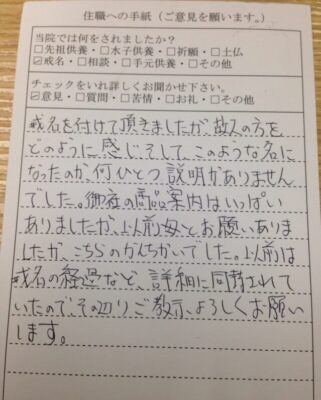 住職への手紙（ご意見を願います。）
当院では何をされましたか？
□先祖供養・□水子供養・□祈願・□土仏
☑戒名・□相談・□手元供養・□その他
チェックをいれ詳しくお聞かせ下さい。
☑意見・□質問・□苦情・□お礼・□その他
戒名を付けて頂きましたが、故人の方を
どのように感じそして、このような名に
なったのか、何ひとつ説明がありません
でした。御社の商品案内はいっぱい
ありましたが、以前 とお願いありま
したが、こちらのかんちがいでした。以前は
戒名の経過など、詳細に同封されて
いたので、その辺りご教示、よろしくお願い
します。